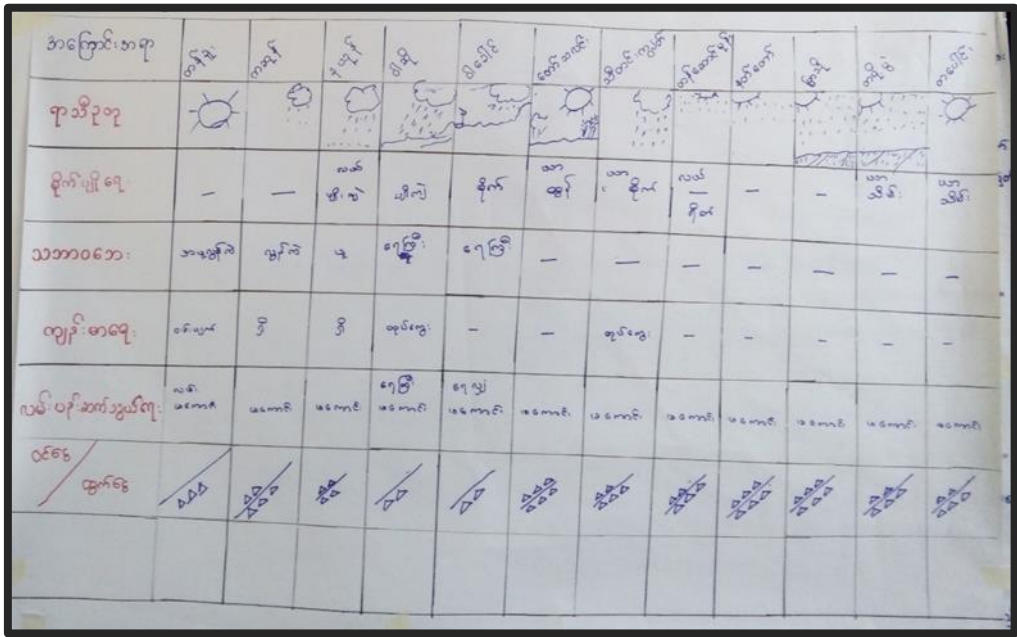 အကြောင်းအရာ တန်ခူး ကဆုန် နယုန် ဝါဆို ဝါခေါင် တော်သလင်း သီတင်းကျွတ် တန်ဆောင်မုန်း နတ်တော် ပြာသို တပို့တွဲ တပေါင်း
ရာသီဥတု
စိုက်ပျိုးရေး - - လယ် ပျိုးကြဲ ပျိုးကြဲ စိုက် ယာ ထွန် ယာ စိုက် လယ် ရိတ် - - ယာ သိမ်း ယာ သိမ်း
သဘာဝဘေး ရေကြီး ရေကြီး - - - - - - -
ကျန်းမာရေး တုပ်ကွေး - - တုပ်ကွေး - - - - -
လမ်းပန်းဆက်သွယ်ရေး လမ်း မကောင်း မကောင်း မကောင်း ရေကြီး မကောင်း မကောင်း မကောင်း မကောင်း မကောင်း မကောင်း မကောင်း မကောင်း မကောင်း
ဝင်ငွေ
ထွက်ငွေ